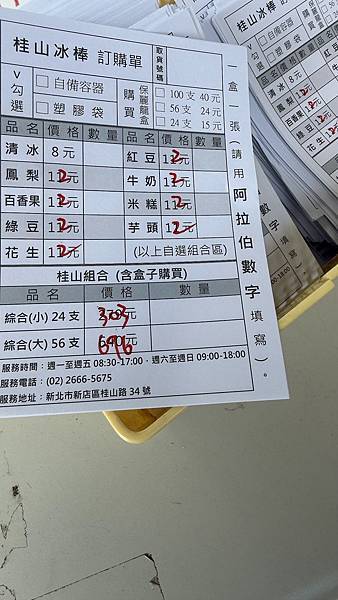 桂山冰棒 訂購單
取貨號碼
V勾選
□ 自備容器
□ 塑膠袋
購買
保麗龍盒
□ 100支 40元
□ 56支 24元
□ 24支 15元
品名 價格 數量 品名 價格 數量
清冰 8元 紅豆 12元
鳳梨 12元 牛奶 12元
百香果 12元 米糕 12元
綠豆 12元 芋頭 12元
花生 12元 (以上自選組合區)
桂山組合 (含盒子購買)
品名 價格 數量
綜合(小) 24支 303元
綜合(大) 56支 696元
服務時間:週一至週五 08:30-17:00,週六至週日 09:00-18:00
服務電話:(02) 2666-5675
服務地址:新北市新店區桂山路 34 號
一盒一張(請用阿拉伯數字填寫)。
冰棒 訂購單
□ 自備容器
□ 塑膠袋